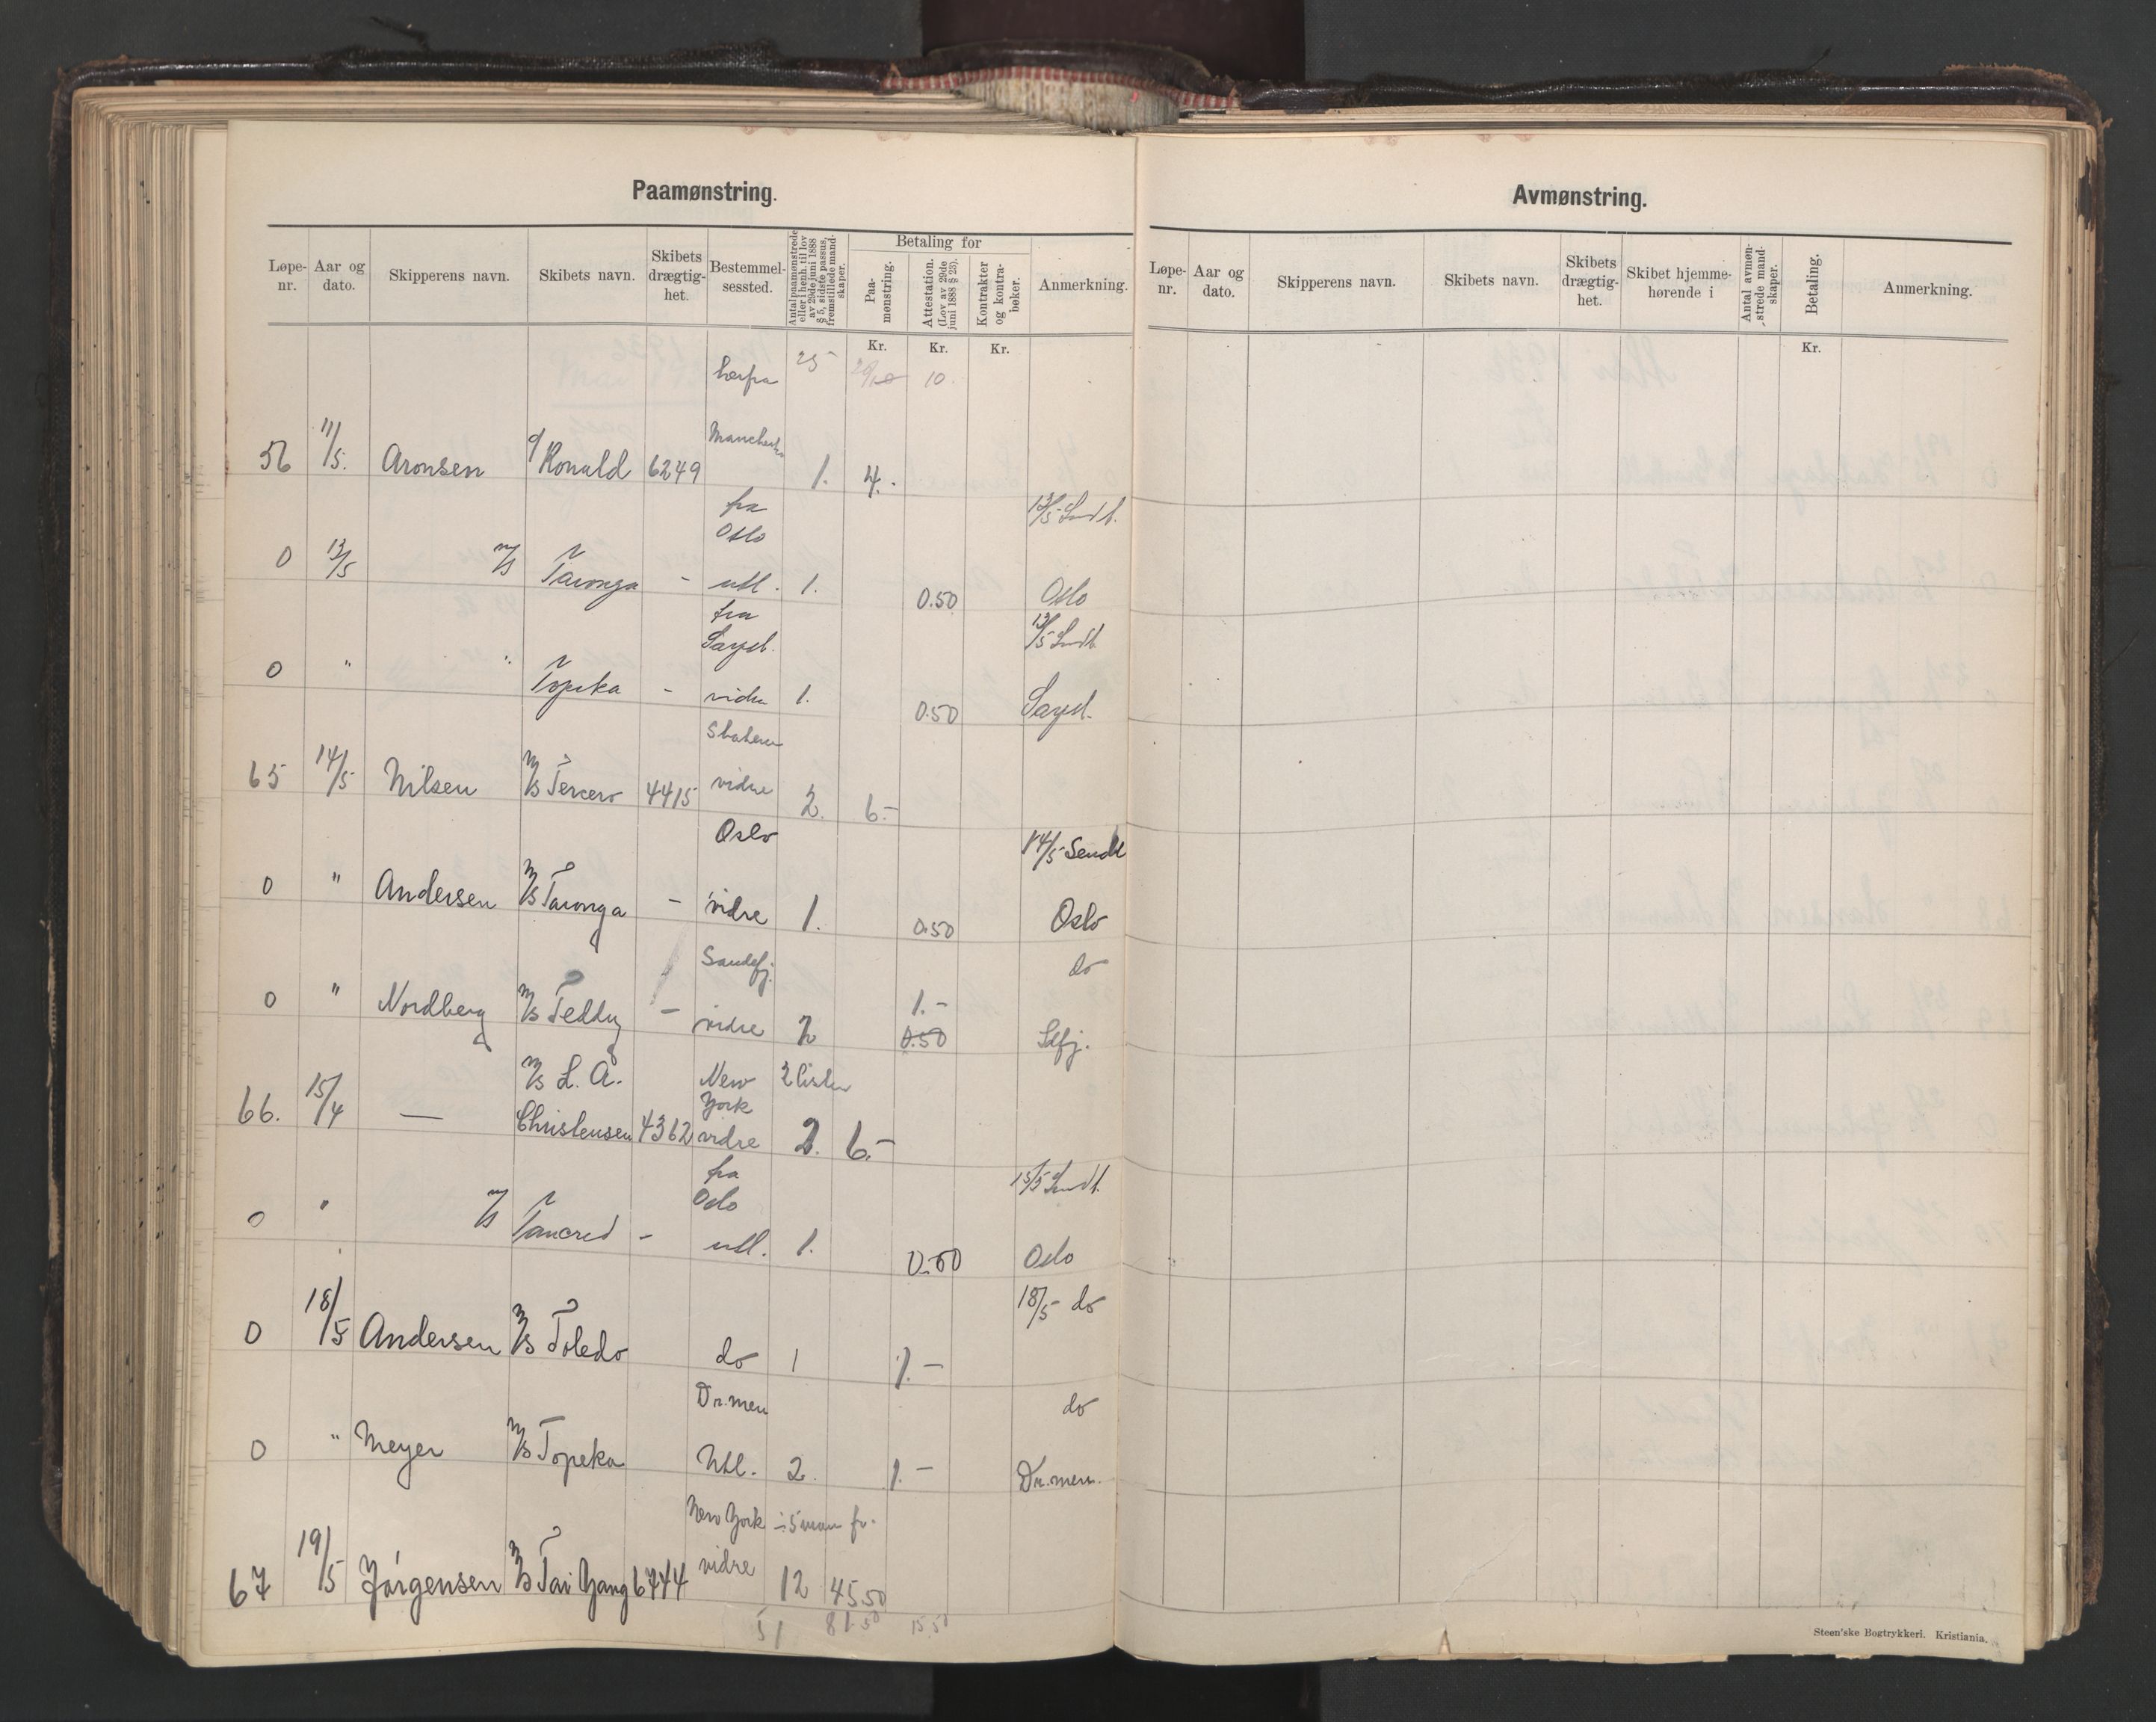 Paamønstring.
Løpe-nr. Aar og dato. Skipperens navn. Skibets navn. Skibets drægtig-het. Bestemmel-sessted. Antal paamønstrede eller i henh. til lov av 29de juni 1888 § 5, sidste passus, fremstillede mand-skaper. Betaling for Paa-mønstring. Attestation. (Lov av 29de juni 1888 § 23). Kontrakter og kontra-bøker. Anmerkning.
Kr. Kr. Kr.
herfra 25 10.
Manchester
56 11/5. Aronsen Ronald 6249 1. 4.-
fra 13/5 Sendt.
Oslo
0 13/5 m/s Taronga - utl. 1. 0.50 Oslo
fra 13/5 Sendt
Sarpsb.
0 " " Topeka - vidre 1. 0.50 Sarpsb.
65 14/5 Nilsen m/s Tercero 4415 vidre 2. 6.-
Oslo 14/5 Sendt
0 " Andersen m/s Taronga - vidre 1. 0.50 Oslo
Sandefj. do
1.-
0 " Nordberg m/s Teddy - vidre 2 0.50 Sdfj.
m/s L. A. New York 2 lister
66. 15/4 — Christensen 4362 vidre 2. 6.-
fra 15/5 Sendt.
Oslo
0 " m/s Tancred - utl. 1. 0.50 Oslo
18/5 do
0 18/5 Andersen m/s Toledo do 1 1.-
Dr.men do
0 " Meyer m/s Topeka Utl. 2. 1.- Dr.men.
New York ÷ 5 man fr.
67 19/5 Jørgensen m/s Tai Yang 6744 vidre 12 45.50
51 81.50 15.50
Avmønstring.
Løpe-nr. Aar og dato. Skipperens navn. Skibets navn. Skibets drægtig-het. Skibet hjemme-hørende i Antal avmøn-strede mand-skaper. Betaling. Anmerkning.
Kr.
Steen'ske Bogtrykkeri. Kristiania.